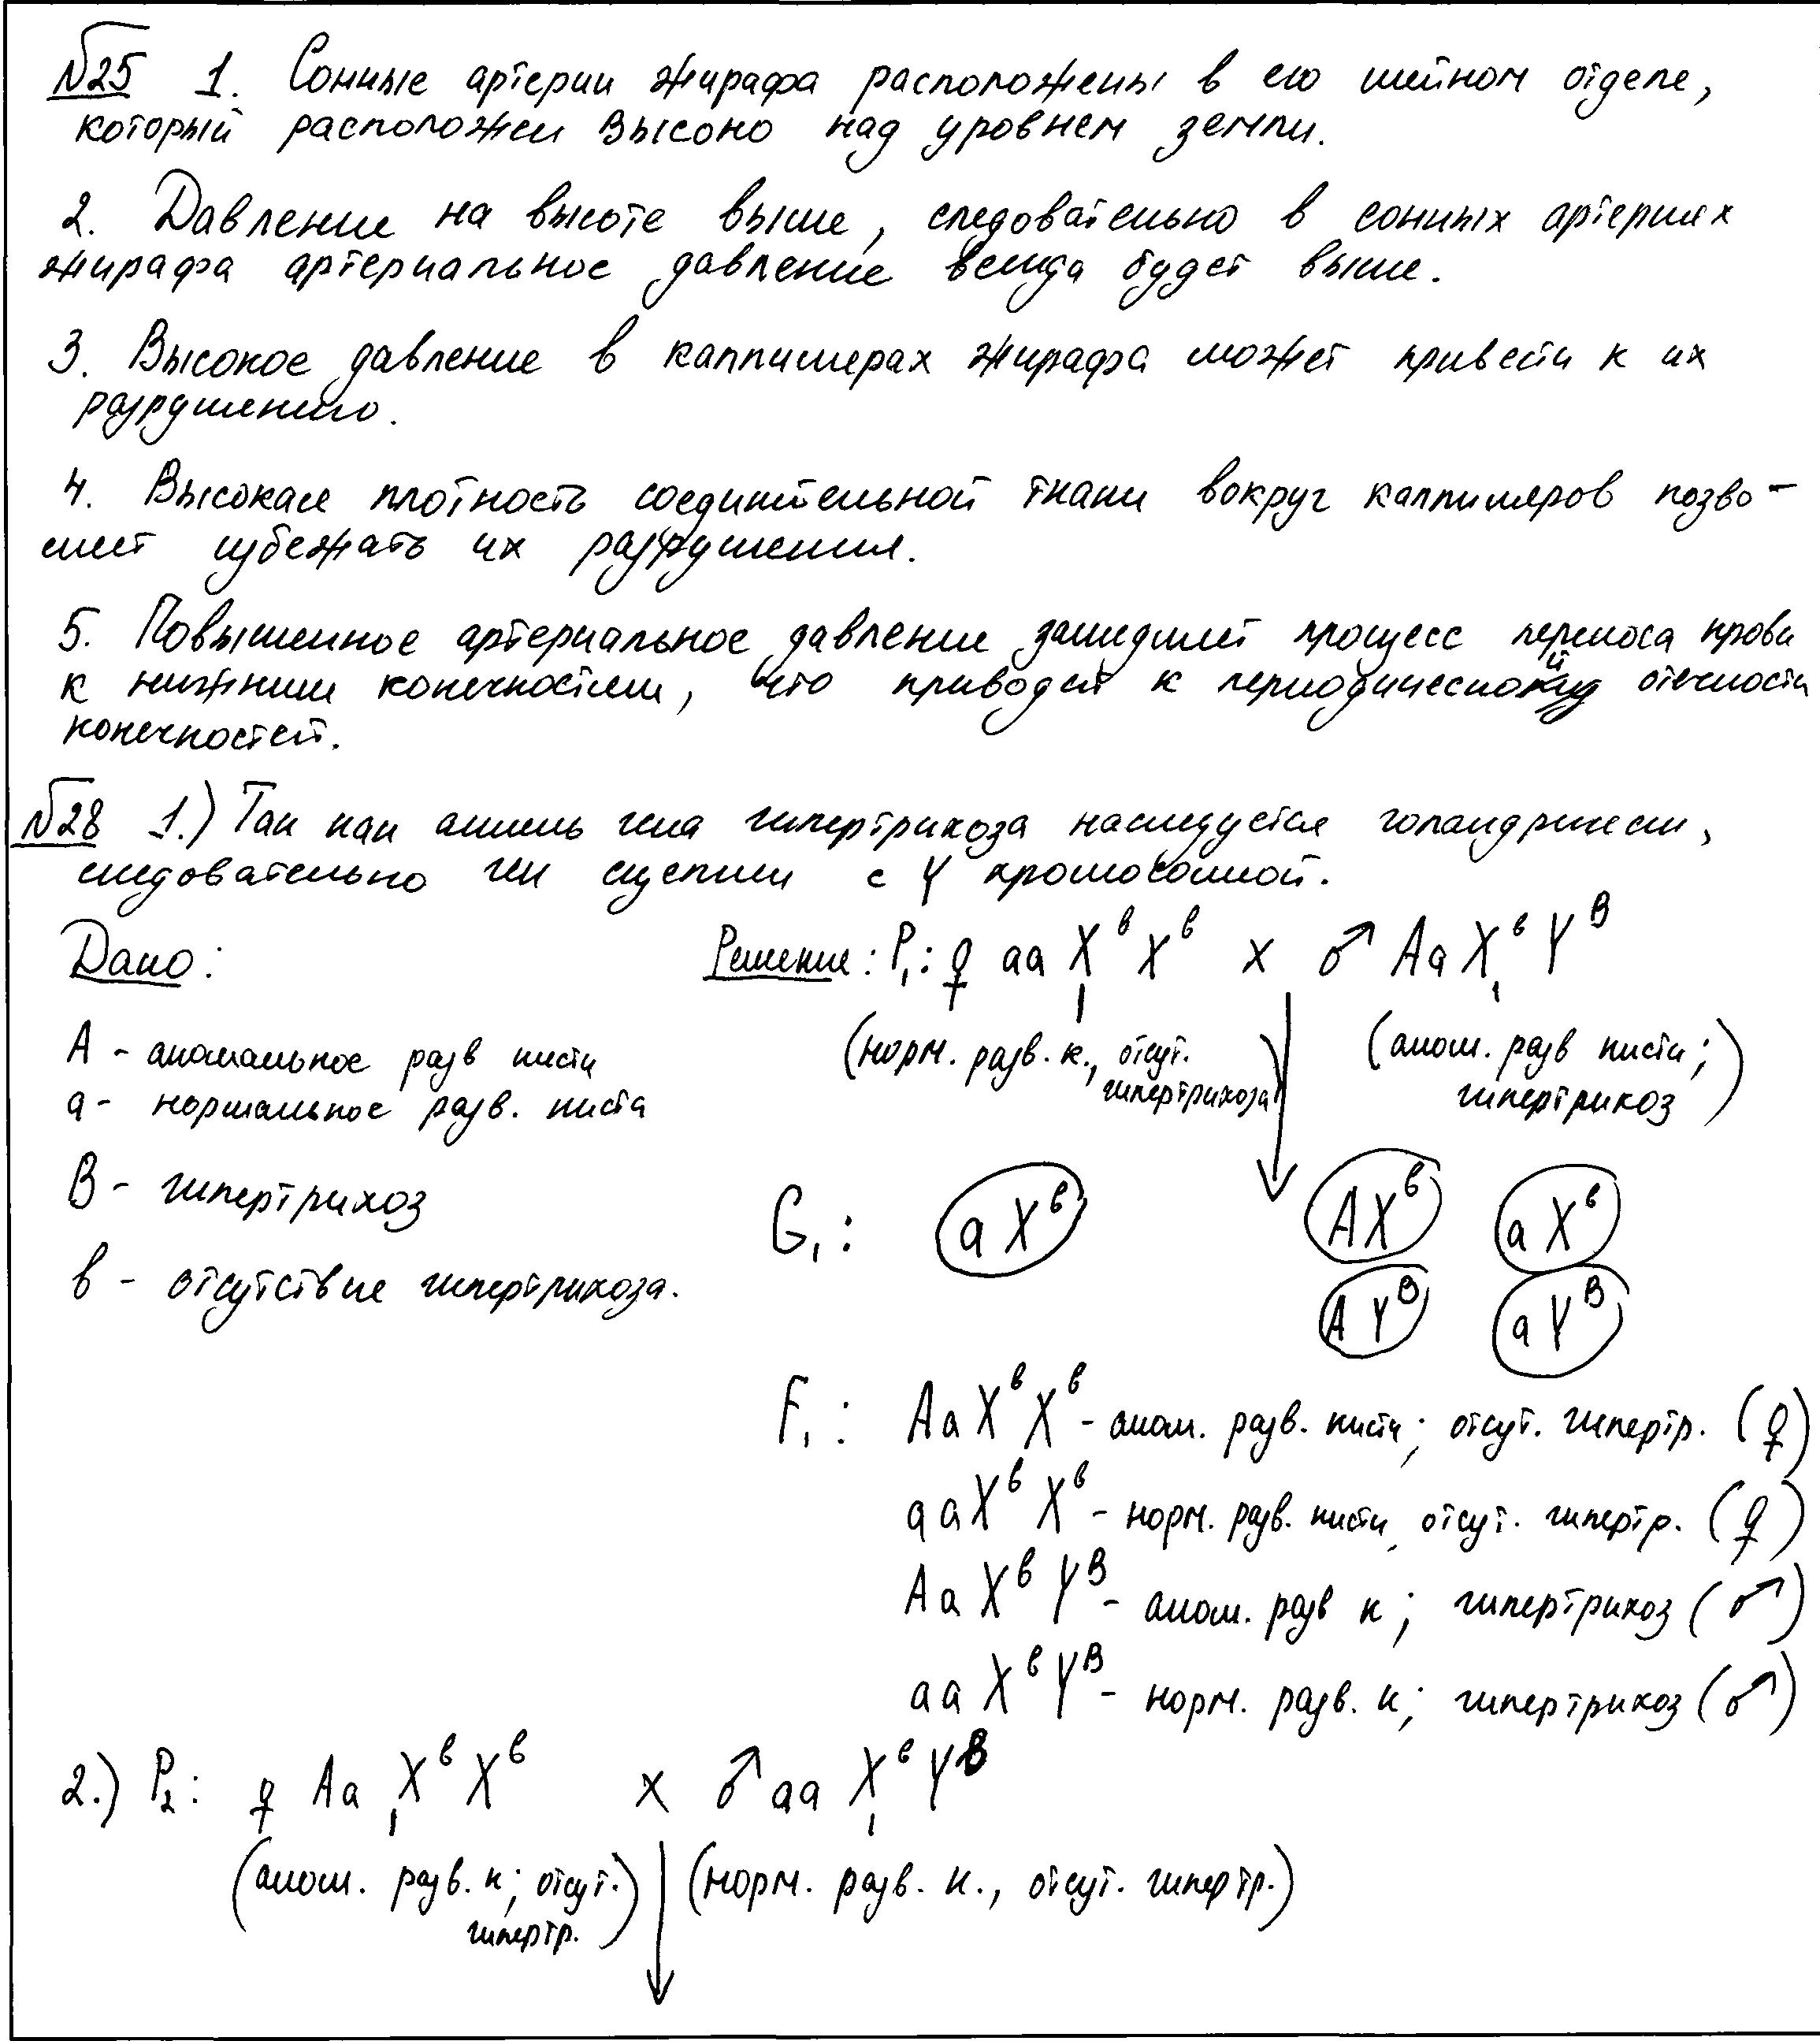 №25 1. Сонные артерии жирафа расположены в его шейном отделе,
который расположен высоко над уровнем земли.
2. Давление на высоте выше, следовательно в сонных артериях
жирафа артериальное давление всегда будет выше.
3. Высокое давление в каппилярах жирафа может привести к их
разрушению.
4. Высокая плотность соединительной ткани вокруг каппиляров позво-
ляет избежать их разрушения.
5. Повышенное артериальное давление замедляет процесс переноса крови
к нижним конечностям, что приводит к периодической отечности
конечностей.
№28 1.) Так как аллель гена гипертрихоза наследуется голандрически,
следовательно ген сцеплен с Y хромосомной.
Дано: Решение: P₁: ♀ aa XᵇXᵇ x ♂ Aa XᵇYᴮ
A - аномальное разв кисти (норм. разв. к., отсут. гипертрихоза) (аном. разв кисти; гипертрихоз)
a - нормальное разв. киста
B - гипертрихоз
G₁: aXᵇ AXᵇ aXᵇ
b - отсутствие гипертрихоза. AYᴮ aYᴮ
F₁: AaXᵇXᵇ - аном. разв. кисти; отсут. гипертр. (♀)
aaXᵇXᵇ - норм. разв. кисти, отсут. гипертр. (♀)
AaXᵇYᴮ - аном. разв к; гипертрихоз (♂)
aaXᵇYᴮ - норм. разв. к; гипертрихоз (♂)
2.) P₂: ♀ Aa XᵇXᵇ x ♂ aa XᵇYᵇ
(аном. разв. к; отсут. гипертр.) (норм. разв. к., отсут. гипертр.)